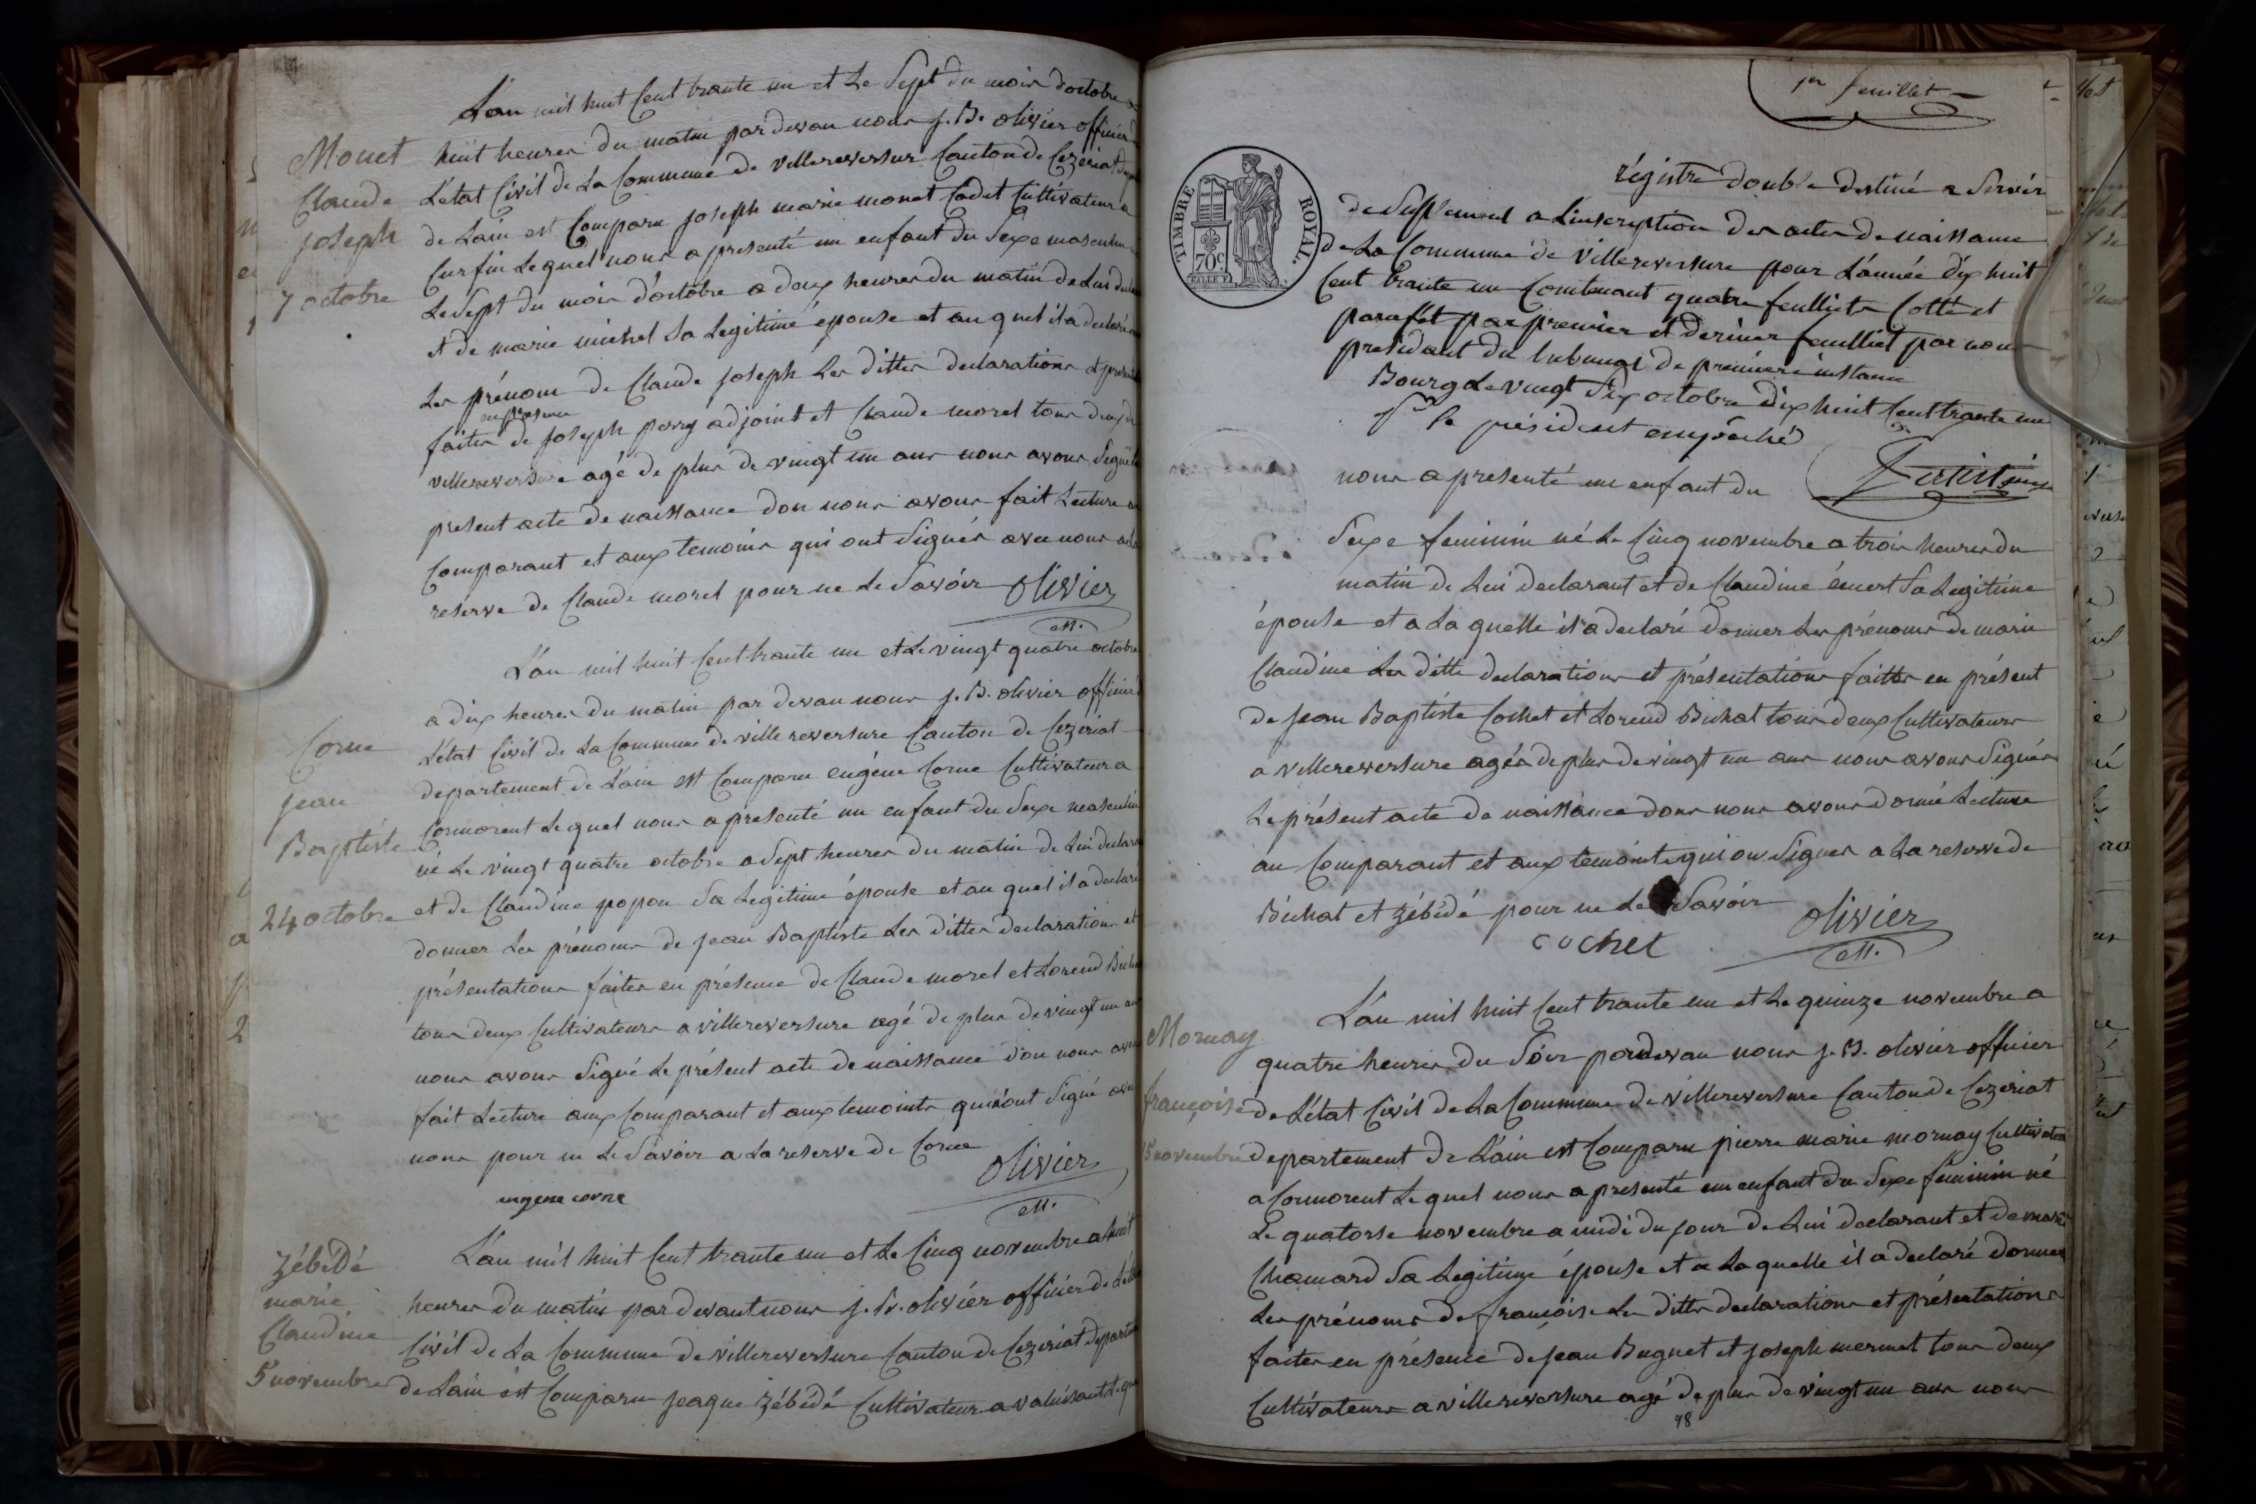 L'an mil huit Cent trante un et Le Sept du mois d'octobre a
Monet
Claude
joseph
7 octobre
huit heures du matin par devan nous j. B. olivier officier
L'état Civil de La Commune de villereversur Canton de Cezeriat
de Lain est Comparu joseph marie monet Cadet Cultivateur a
Curfin Le quel nous a presenté un enfant du Sexe masculin
Le Sept du mois d'octobre a deux heures du matin de Lui
et de marie michel Sa Legitime épouse et au quel il a declaré
Les prénom de Claude joseph Les dittes declarations et
en presence
faites de joseph perry adjoint et Claude morel tous deux
villereversure agé de plus de vingt un ans nous avons Signé
present acte de naissance don nous avons fait Lecture
Comparant et aux temoins qui ont Signés avec nous a la
reserve de Claude morel pour ne Le Savoir olivier
L'an mil huit Cent trante un et Le vingt quatre octobre
Corne
jean
Baptiste
24 octobre
a dix heures du matin par devan nous j. B. olivier officier
L'état Civil de La Commune de villereversure Canton de Cezeriat
departement de L'ain est Comparu eugéne Corne Cultivateur a
Cormorent Le quel nous a presenté un enfant du Sexe masculin
né Le vingt quatre octobre a Sept heures du matin de Lui
et de Claudine popon Sa Legitime épouse et au quel il a declaré
donner Les prénoms de jean Baptiste Les dittes declarations et
présentations faites en présence de Claude morel et Lorend
tous deux Cultivateurs a villereversure agé de plus de vingt un ans
nous avons Signé Le présent acte de naissance don nous avons
fait Lecture aux Comparant et aux temoints qui ont Signé avec
nous pour ne Le Savoir a La reserve de Corne
eugene corne olivier
Zébédé
marie
Claudine
5 novembre
L'an mil huit Cent trante un et Le Cinq novembre a huit
heures du matin par devant nous j. B. olivier officier de
Civil de La Commune de villereversure Canton de Cezeriat
de Lain est Comparu jeaque Zébédé Cultivateur a
1er feuillet
TIMBRE ROYAL.
70c
régistre double destiné a Servir
de Suplement a L'inscription des actes de naissance
de La Commune de Villereversure pour L'année dix huit
Cent trante un Contenant quatre feuillets Cotté et
parafet par premier et dernier feuillet par nous
president du tribunal de première instance
Bourg Le vingt Six octobre dix huit Cent trante un
Pr le président empêché
nous a presenté un enfant du
Sexe feminin né Le Cinq novembre a trois heures du
matin de Lui declarant et de Claudine émert Sa Legitime
épouse et a La quelle il a declaré donner Les prénoms de marie
Claudine Les ditte declarations et présentations faittes en présent
de jean Baptiste Cochet et Lorend Bichat tous deux Cultivateurs
a villereversure agés de plus de vingt un ans nous avons Signés
Le présent acte de naissance dons nous avons donné Lecture
au Comparant et aux temoints qui on Signer a La reserve de
Bichat et Zébédé pour ne Le Savoir
cochet olivier
Mornay
françoise
15 novembre
L'an mil huit Cent trante un et Le quinze novembre a
quatre heures du Soir pardevan nous j. B. olivier officier
de L'état Civil de La Commune de villereversure Canton de Cezeriat
departement de L'ain est Comparu pierre marie mornay Cultivateur
a Cormorent Le quel nous a presenté un enfant du Sexe feminin né
Le quatorse novembre a midi du jour de Lui declarant et de marie
Chanard Sa Legitime épouse et a La quelle il a declaré donner
Les prénoms de françoise Les dittes declarations et présentations
faites en présence de jean Buguet et joseph mermet tous deux
Cultivateurs a villereversure agé de plus de vingt un ans nous
98